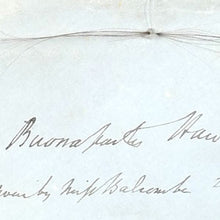 Buonapartes Hair
given by Miss Balcombe